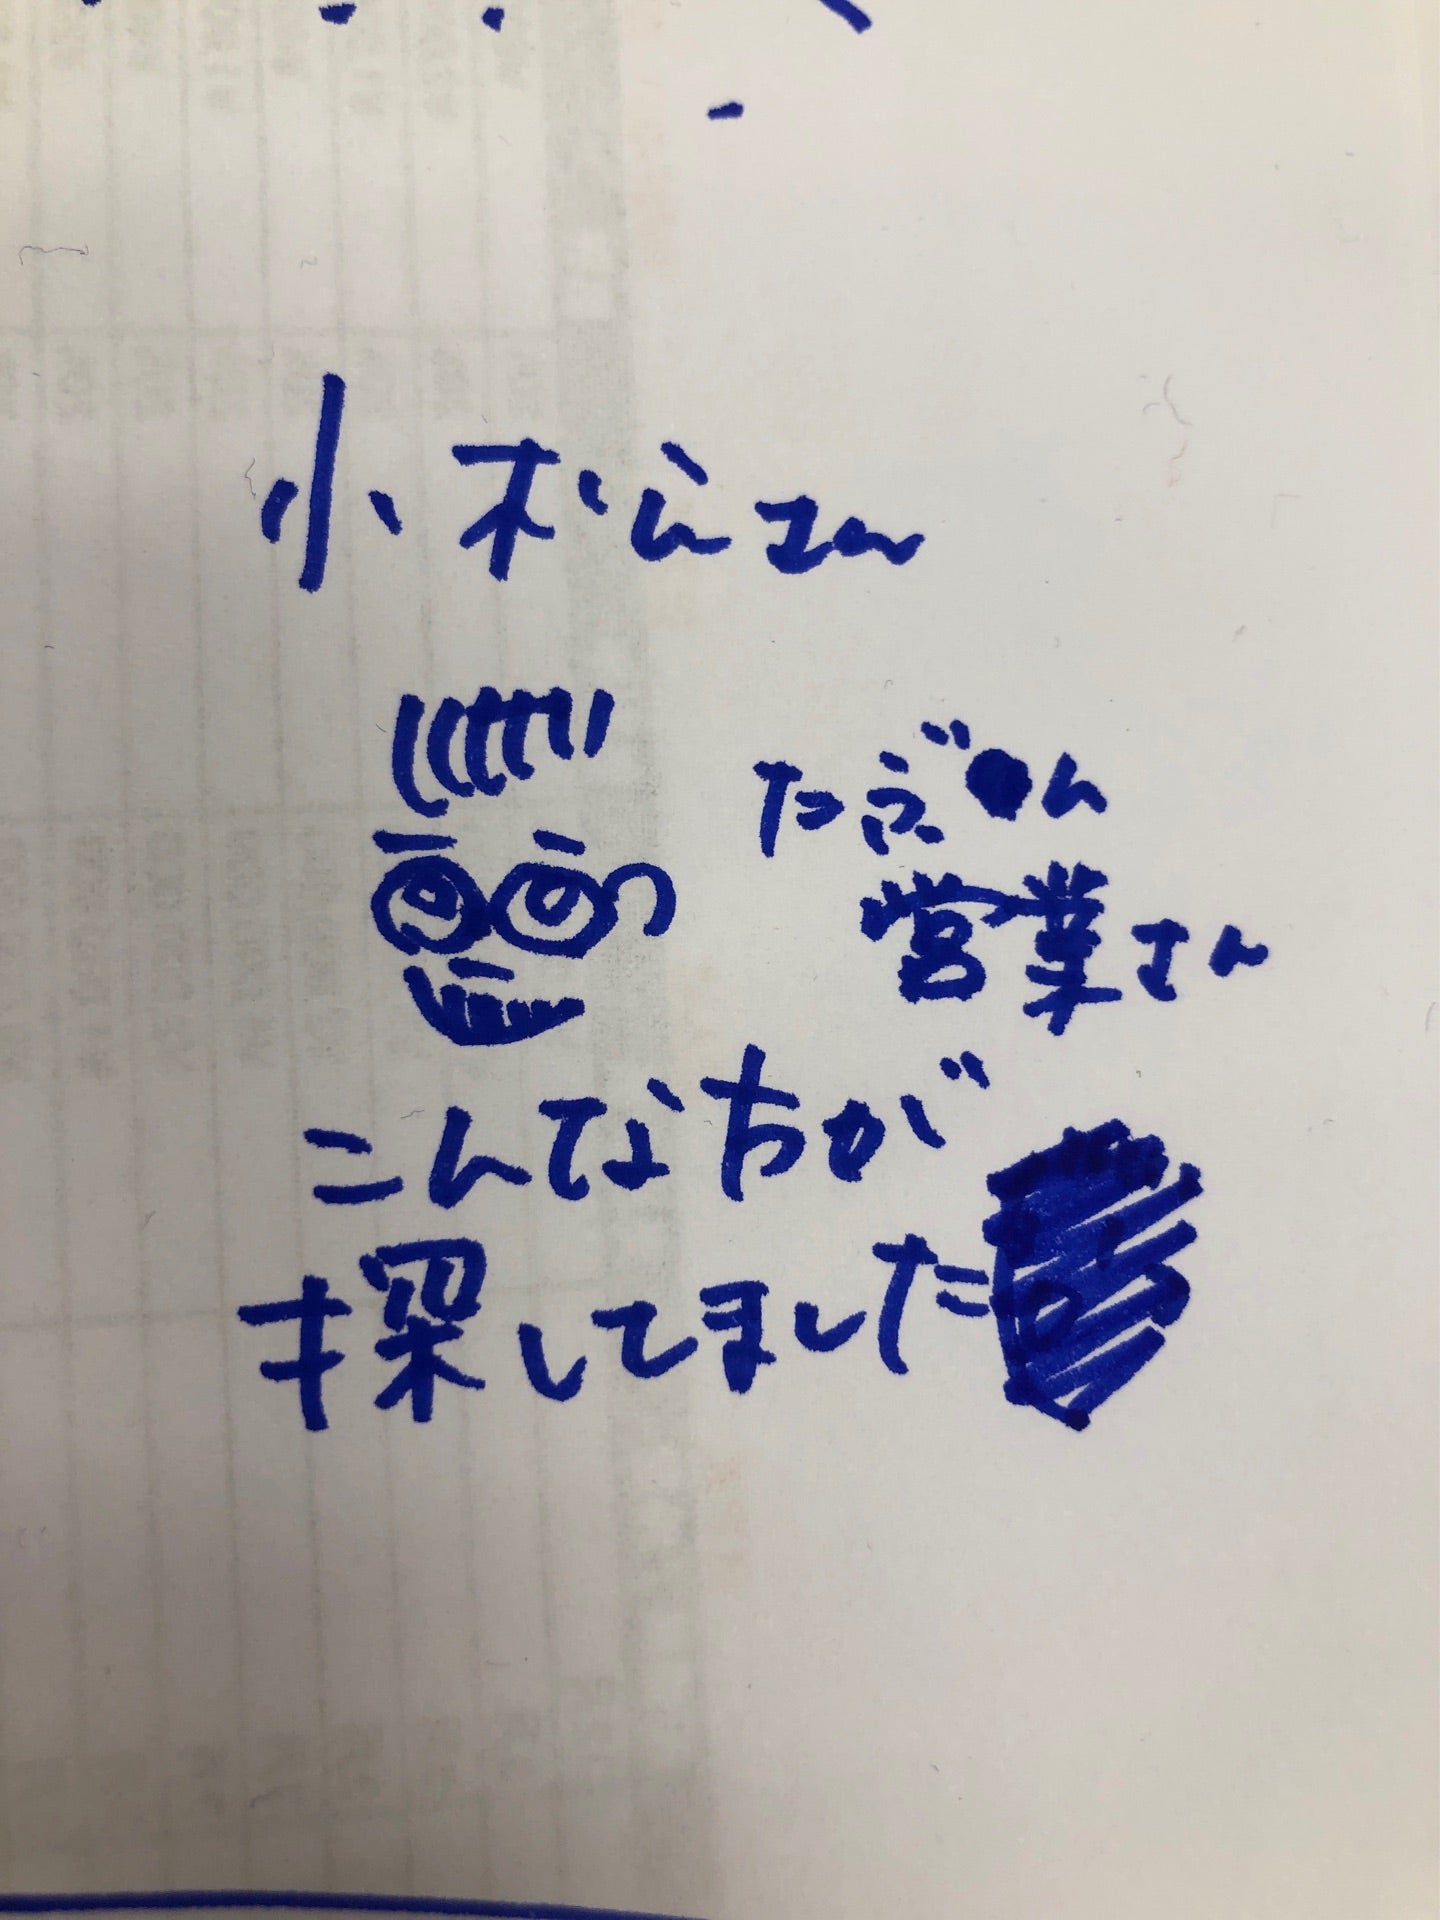 小松さん
たぶん
営業さん
こんな方が
探してました